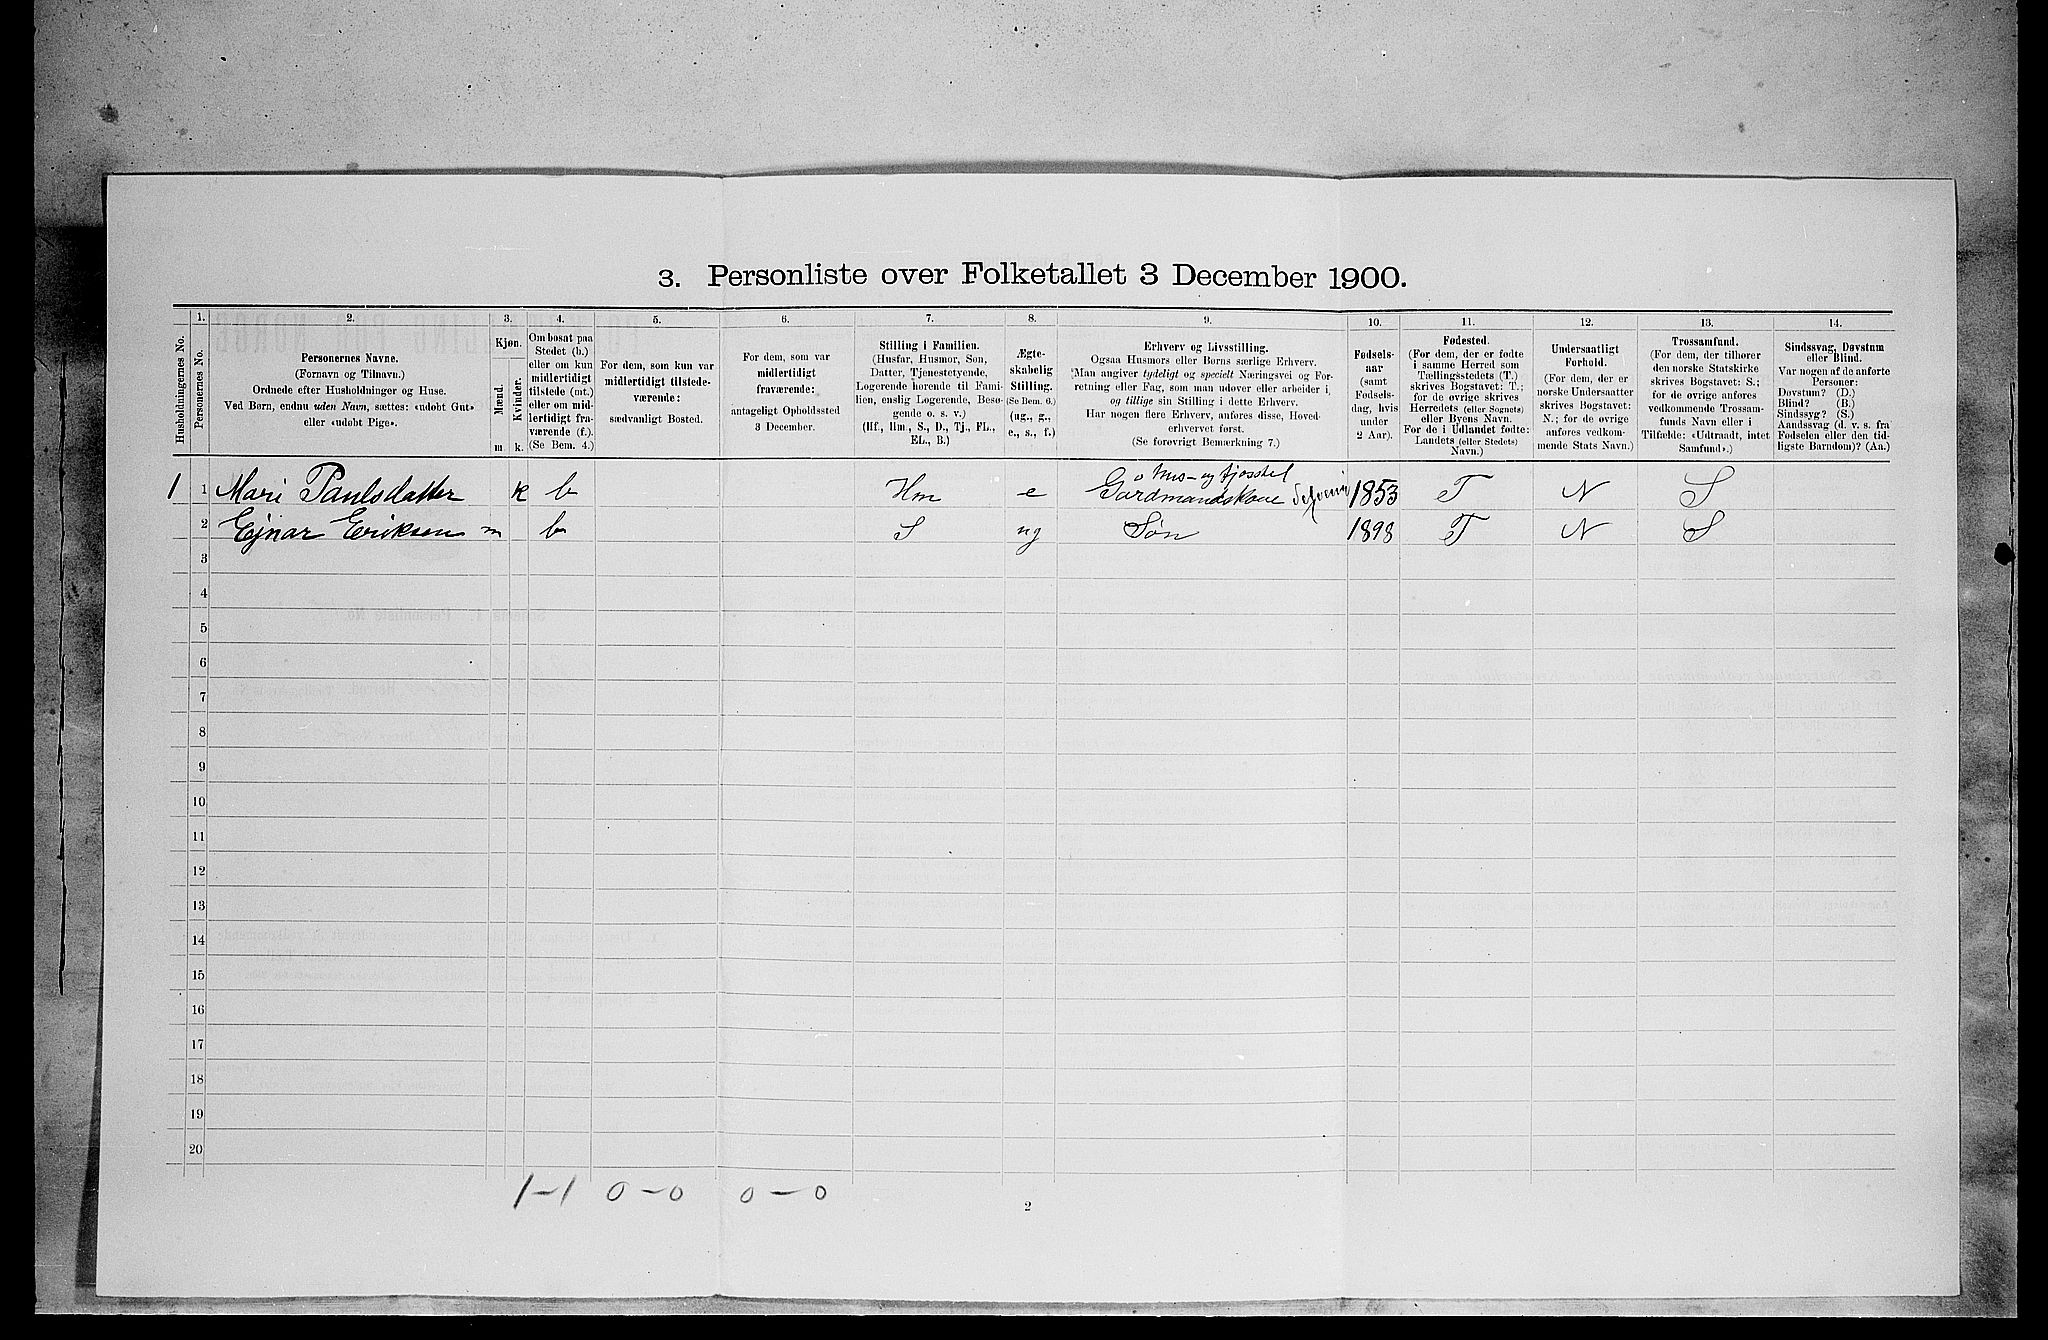 3. Personliste over Folketallet 3 December 1900.
Husholdningernes No.
1.
Personernes No.
2.
Personernes Navne.
(Fornavn og Tilnavn.)
Ordnede efter Husholdninger og Huse.
Ved Børn, endnu uden Navn, sættes: «udøbt Gut»
eller «udøbt Pige».
3.
Kjøn.
Mænd.
Kvinder.
m. k.
4.
Om bosat paa
Stedet (b.)
eller om kun
midlertidigt
tilstede (mt.)
eller om mid-
lertidigt fra-
værende (f.).
(Se Bem. 4.)
5.
For dem, som kun var
midlertidigt tilstede-
værende:
sædvanligt Bosted.
6.
For dem, som var
midlertidigt
fraværende:
antageligt Opholdssted
3 December.
7.
Stilling i Familien.
(Husfar, Husmor, Søn,
Datter, Tjenestetyende,
Logerende hørende til Fami-
lien, enslig Logerende, Besø-
gende o. s. v.)
(Hf., Hm., S., D., Tj., FL.,
EL., B.)
8.
Ægte-
skabelig
Stilling.
(Se Bem. 6.)
(ug., g.,
e., s., f.)
9.
Erhverv og Livsstilling.
Ogsaa Husmors eller Børns særlige Erhverv.
Man angiver tydeligt og specielt Næringsvei og For-
retning eller Fag, som man udøver eller arbeider i,
og tillige sin Stilling i dette Erhverv.
Har nogen flere Erhverv, anføres disse, Hoved-
erhvervet først.
(Se forøvrigt Bemærkning 7.)
10.
Fødsels-
aar
(samt
Fødsels-
dag, hvis
under
2 Aar).
11.
Fødested.
(For dem, der er fødte
i samme Herred som
Tællingsstedets (T.)
skrives Bogstavet: T.;
for de øvrige skrives
Herredets (eller Sognets)
eller Byens Navn.
For de i Udlandet fødte:
Landets (eller Stedets)
Navn.)
12.
Undersaatligt
Forhold.
(For dem, der er
norske Undersaatter
skrives Bogstavet:
N.; for de øvrige
anføres vedkom-
mende Stats Navn.)
13.
Trossamfund.
(For dem, der tilhører
den norske Statskirke
skrives Bogstavet: S.;
for de øvrige anføres
vedkommende Trossam-
funds Navn eller i
Tilfælde: «Udtraadt, intet
Samfund».)
14.
Sindssvag, Døvstum
eller Blind.
Var nogen af de anførte
Personer:
Døvstum? (D.)
Blind? (B.)
Sindssyg? (S.)
Aandssvag (d. v. s. fra
Fødselen eller den tid-
ligste Barndom)? (Aa.)
Hus- og fjøsstel
1 1 Mari Paulsdatter k b Hm e Gardmandskone 1853 T N S
2 Ejnar Eriksen m b S ug Søn 1898 T N S
3
4
5
6
7
8
9
10
11
12
13
14
15
16
17
18
19
20
1-1 0-0 0-0
2